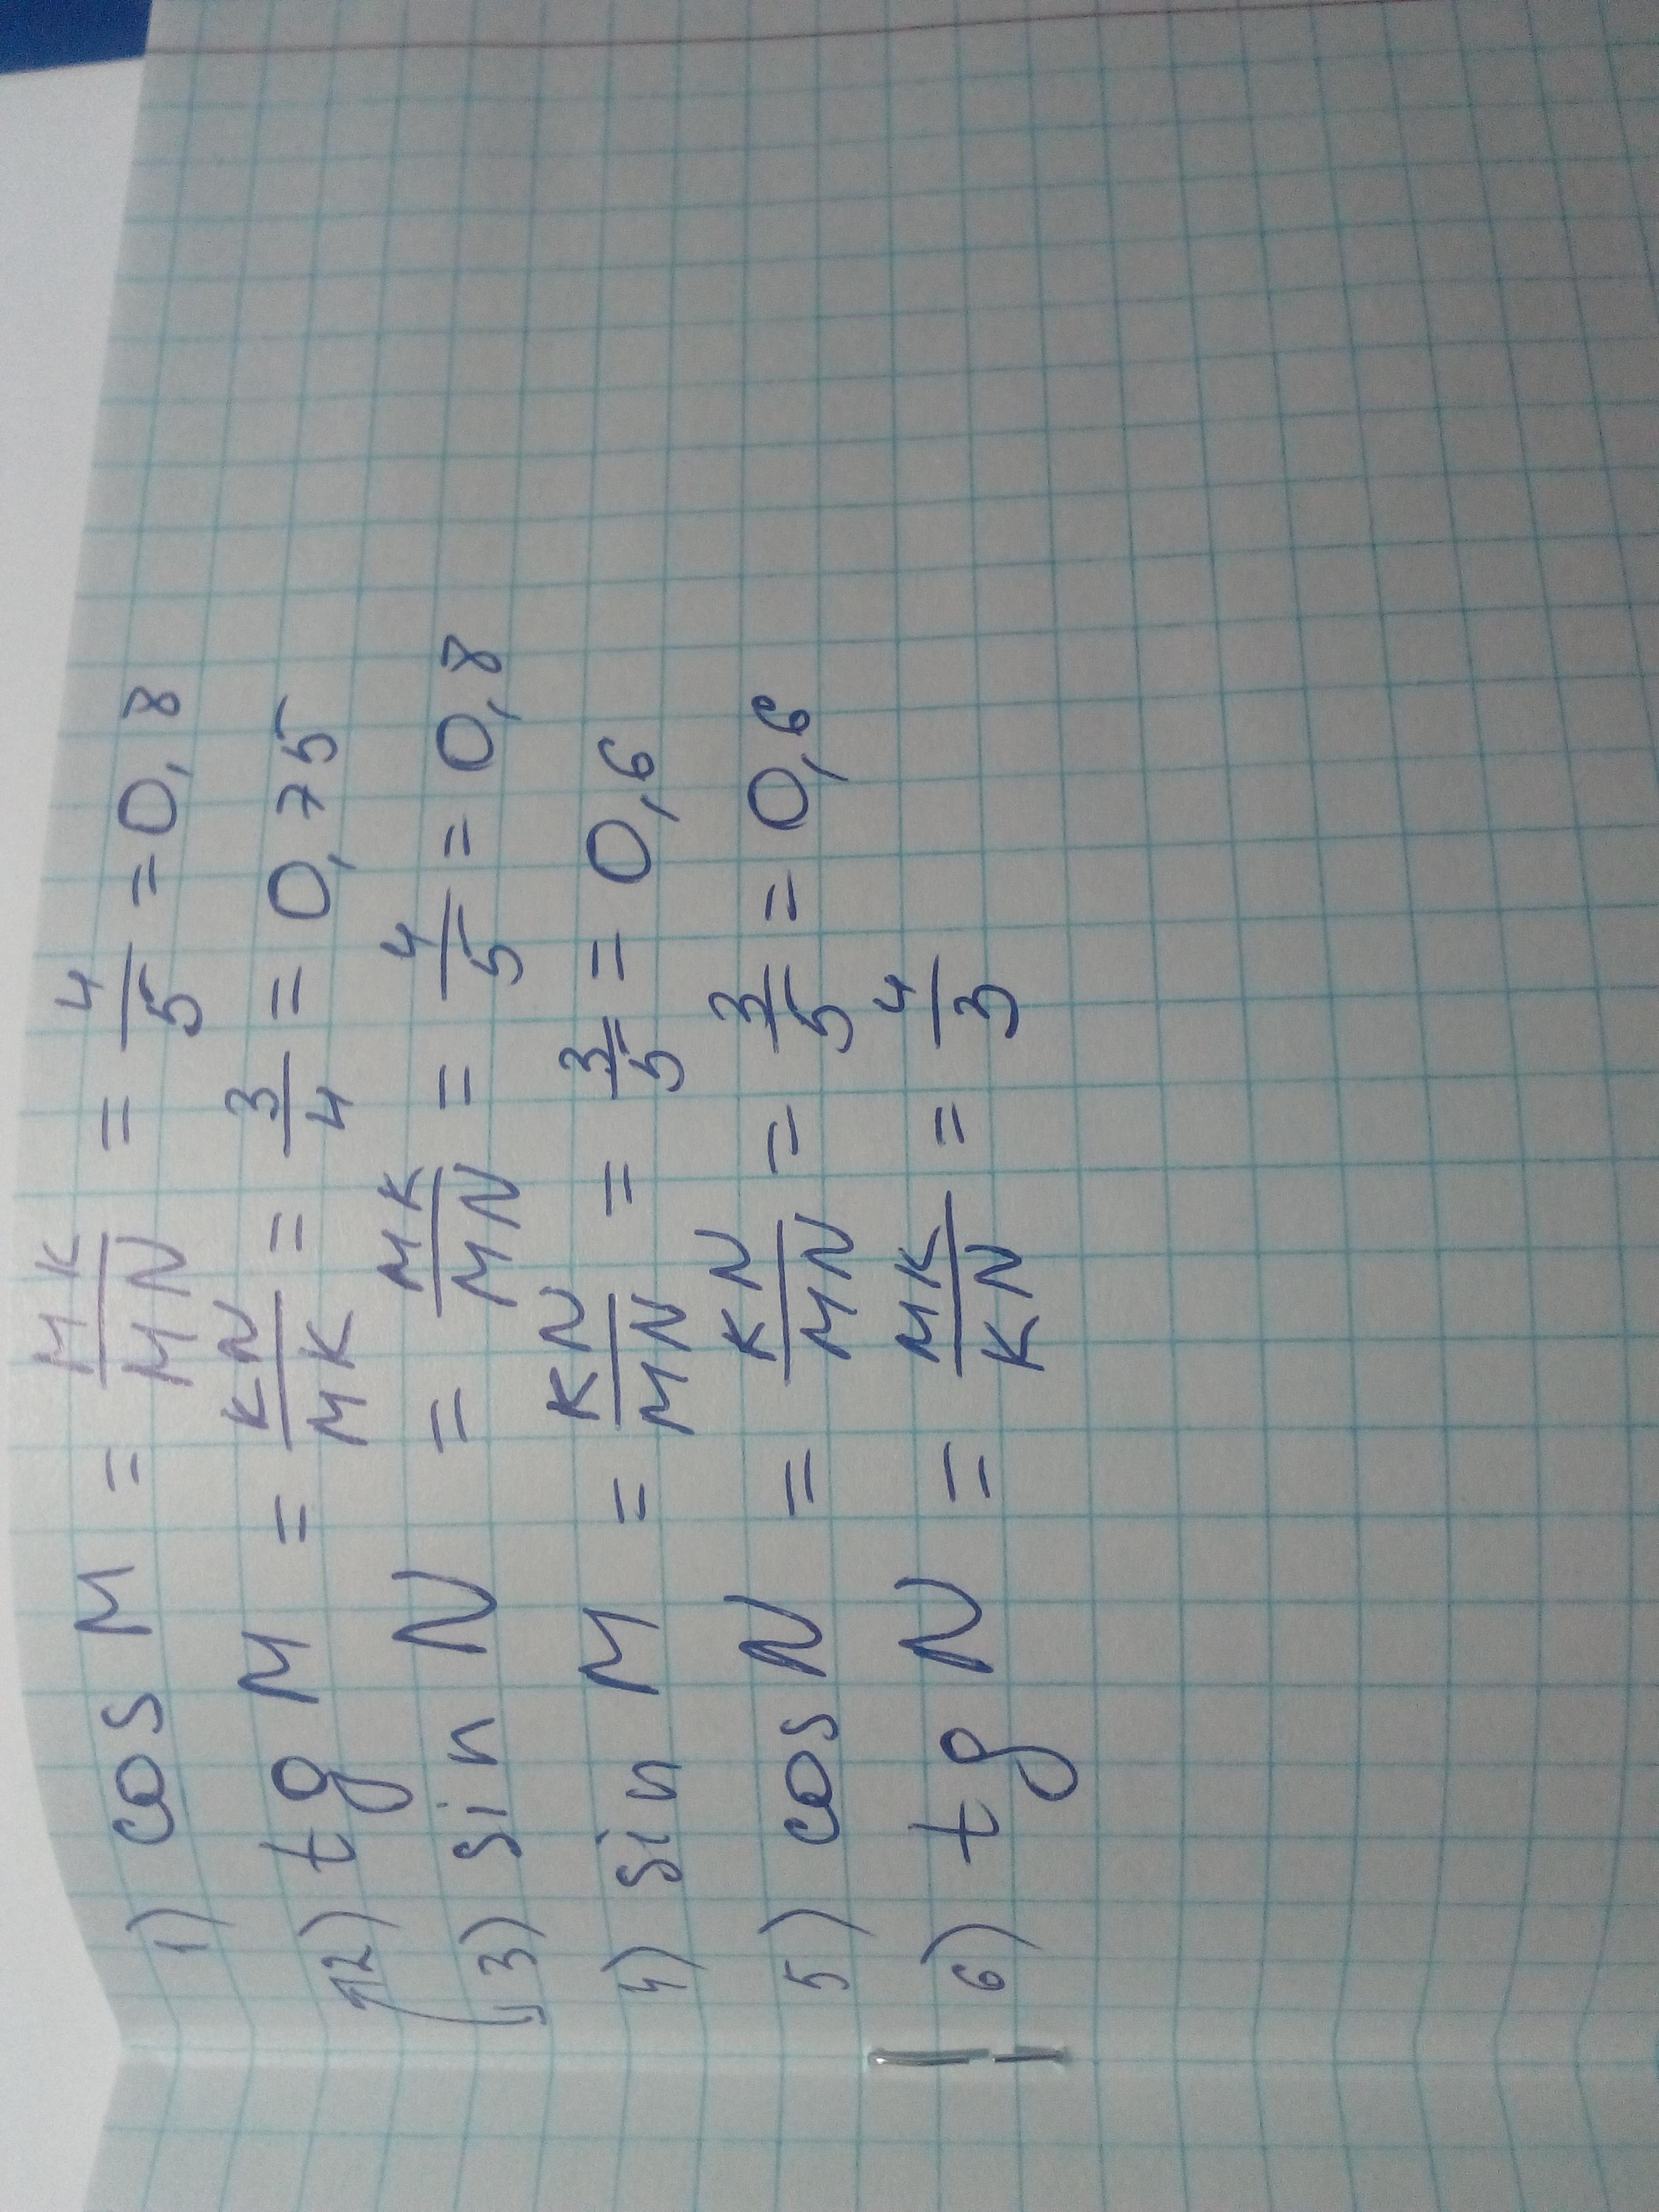 1) cos M = MK/MN = 4/5 = 0,8
2) tg M = KN/MK = 3/4 = 0,75
3) sin N = MK/MN = 4/5 = 0,8
4) sin M = KN/MN = 3/5 = 0,6
5) cos N = KN/MN = 3/5 = 0,6
6) tg N = MK/KN = 4/3